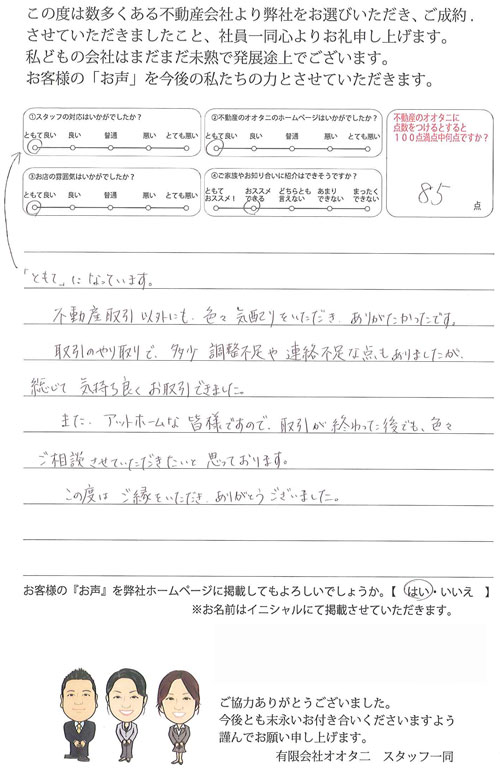 この度は数多くある不動産会社より弊社をお選びいただき、ご成約、
させていただきましたこと、社員一同心よりお礼申し上げます。
私どもの会社はまだまだ未熟で発展途上でございます。
お客様の「お声」を今後の私たちの力とさせていただきます。
①スタッフの対応はいかがでしたか？
ともて良い 良い 普通 悪い とても悪い
②不動産のオオタニのホームページはいかがでしたか？
ともて良い 良い 普通 悪い とても悪い
不動産のオオタニに
点数をつけるとすると
１００点満点中何点ですか？
85 点
③お店の雰囲気はいかがでしたか？
ともて良い 良い 普通 悪い とても悪い
④ご家族やお知り合いに紹介はできそうですか？
とても
おススメ！
おススメ
できる
どちらとも
言えない
あまり
できない
まったく
できない
「ともて」になっています。
不動産取引以外にも、色々気配りをいただき、ありがたかったです。
取引のやり取りで、多少 調整不足や連絡不足な点もありましたが、
総じて気持ち良くお取引できました。
また、アットホームな皆様ですので、取引が終わった後でも、色々
ご相談させていただきたいと思っております。
この度はご縁をいただき、ありがとうございました。
お客様の『お声』を弊社ホームページに掲載してもよろしいでしょうか。【 はい・いいえ 】
※お名前はイニシャルにて掲載させていただきます。
ご協力ありがとうございました。
今後とも末永いお付き合いくださいますよう
謹んでお願い申し上げます。
有限会社オオタニ スタッフ一同